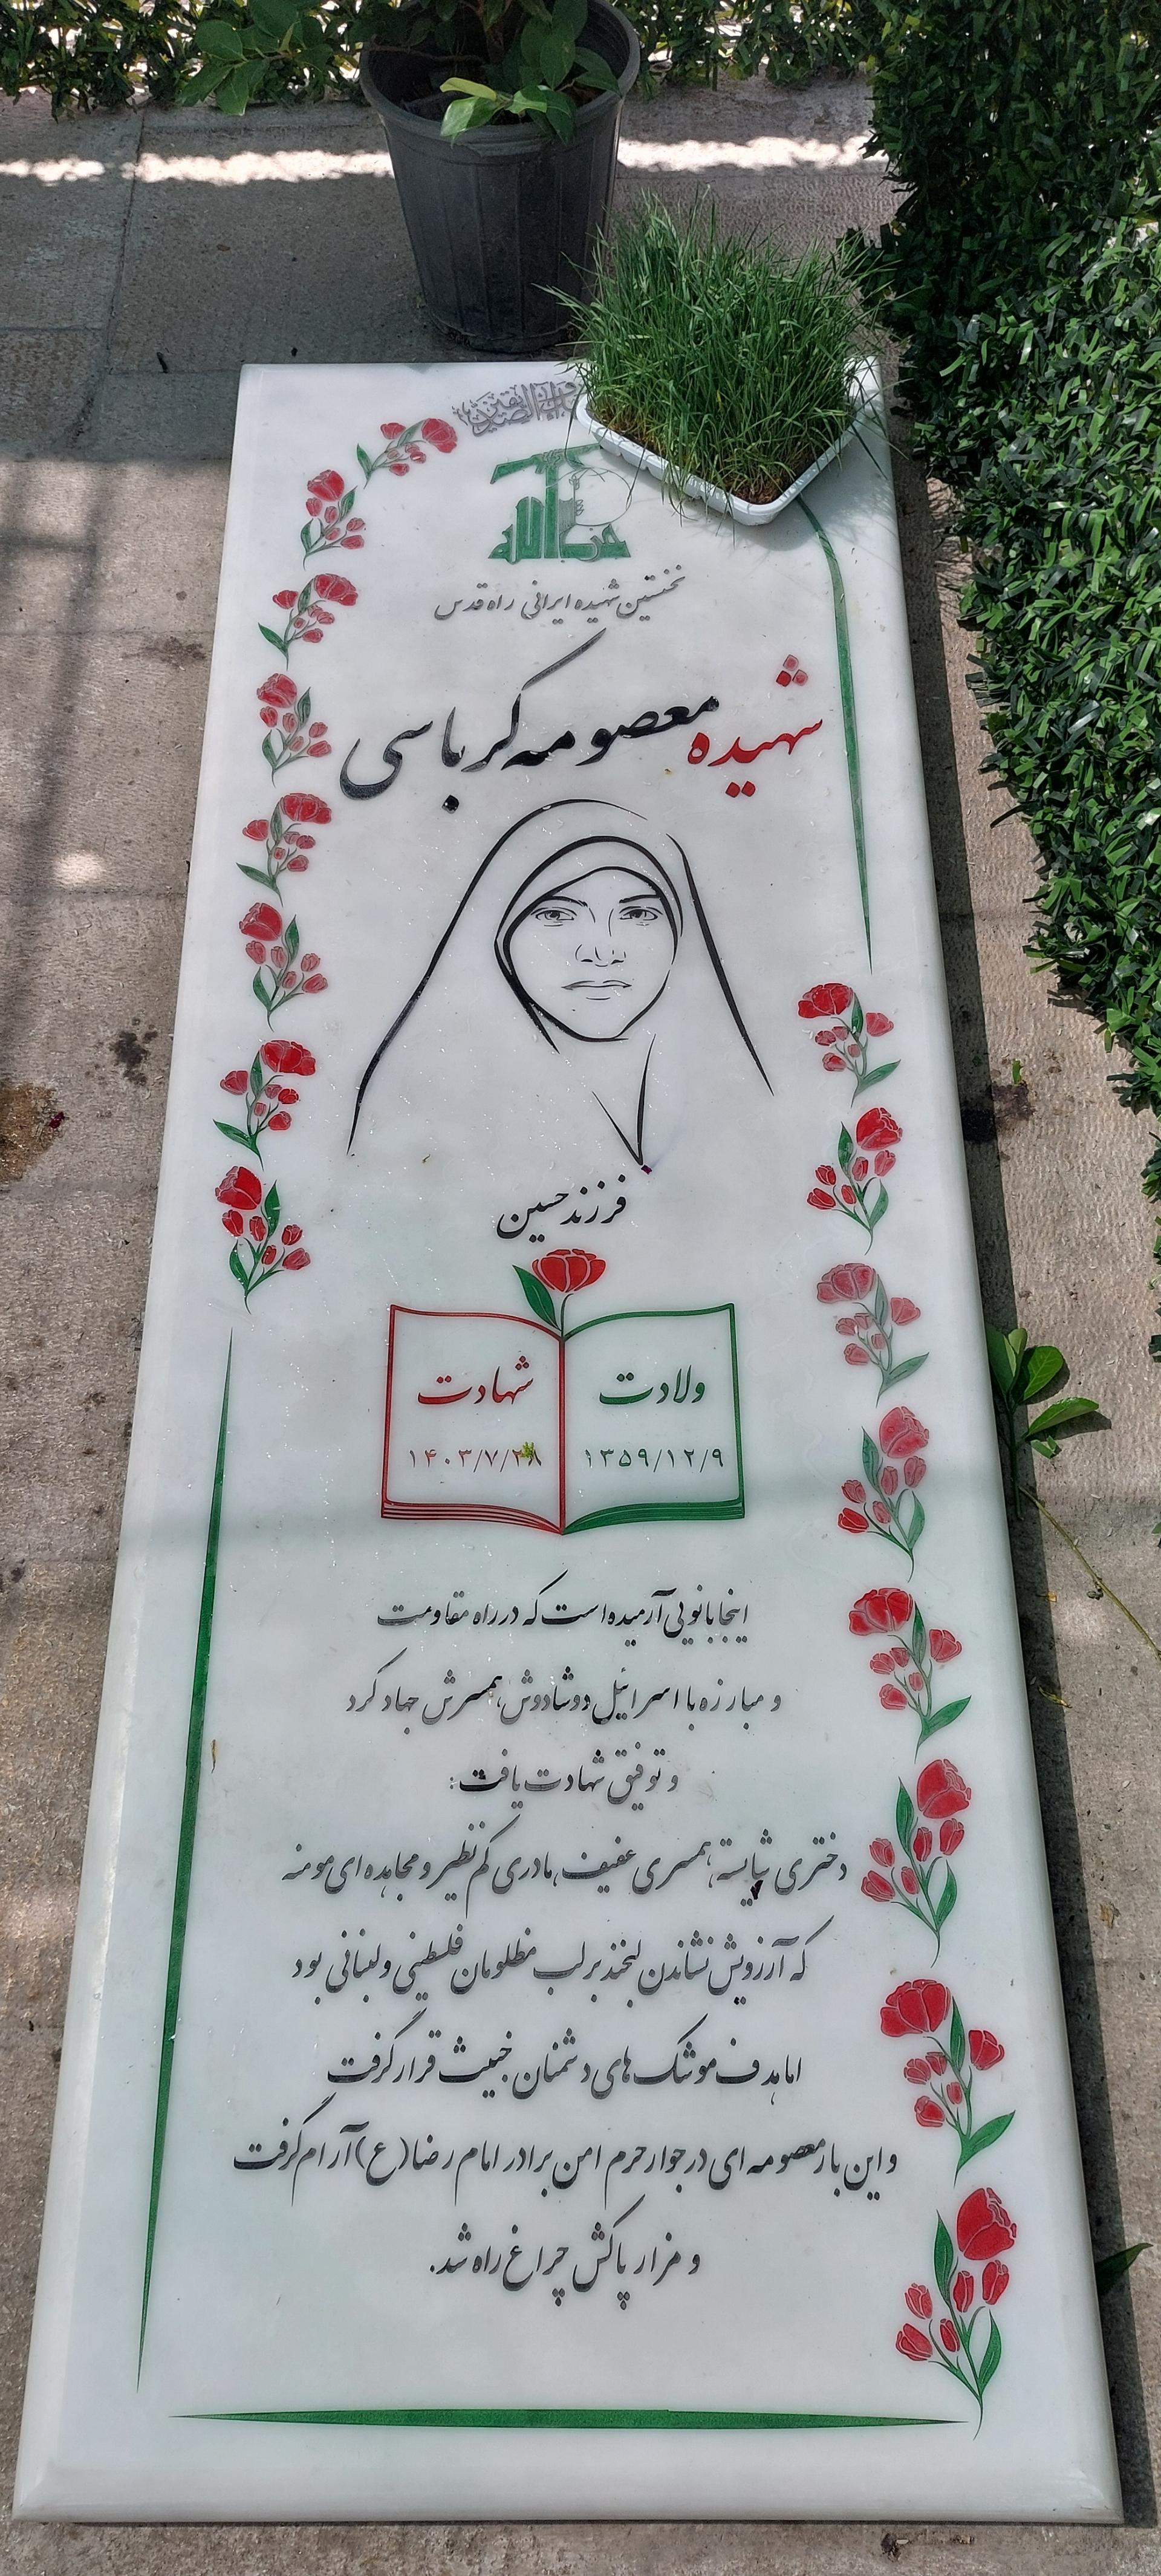 حزب الله
نخستین شهیده ایرانی راه قدس
شهیده معصومه کرباسی
فرزند حسین
ولادت
۱۳۵۹/۱۲/۹
شهادت
۱۴۰۳/۷/۲۸
اینجا بانویی آرمیده است که در راه مقاومت
و مبارزه با اسرائیل دوشادوش همسرش جهاد کرد
و توفیق شهادت یافت:
دختری شایسته، همسری عفیف، مادری کم نظیر و مجاهده ای مومنه
که آرزویش نشاندن لبخند بر لب مظلومان فلسطینی و لبنانی بود
اما هدف موشک های دشمنان خبیث قرار گرفت
و این بار معصومه ای در جوار حرم امن برادر امام رضا (ع) آرام گرفت
و مزار پاکش چراغ راه شد.